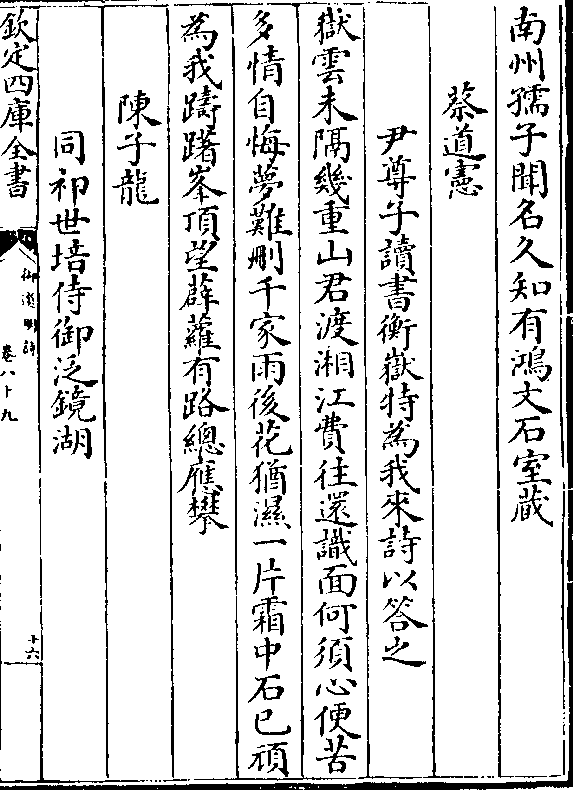 南州孺子聞名久知有鴻文石室蔵
蔡道憲
尹尊子讀書衡嶽特為我來詩以答之
嶽雲未隔幾重山君渡湘江費往還識面何須心便苦
多情自悔夢難刪千家雨後花猶濕一片霜中石已頑
為我躊躇峯頂望薜蘿有路總應攀
陳子龍
同祁世培侍御泛鏡湖
欽定四庫全書
御選明詩
卷八十九
十六